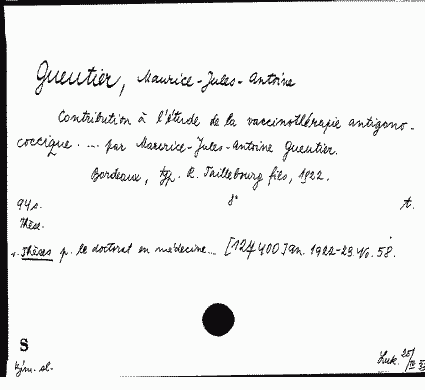 Gueutier, Maurice-Jules-Antoine
Contribution à l'étude de la vaccinothérapie antigono-
coccique .... par Maurice-Jules-Antoine Gueutier.
Bordeaux, typ. R. Taillebourg fils, 1922.
94 s. 8° t.
Thèse.
Thèses p. le doctorat en médecine... [124400 Jan. 1922-23 No. 58.
S
Luk. 25/